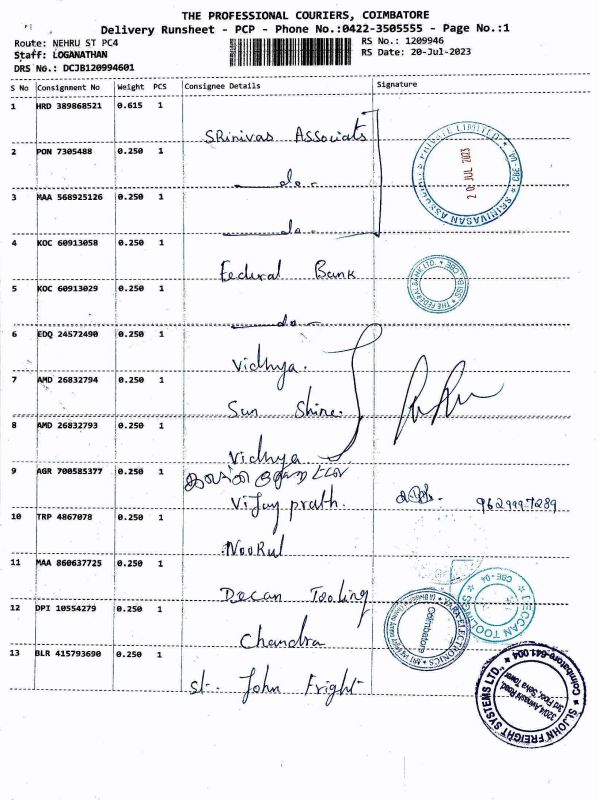 THE PROFESSIONAL COURIERS, COIMBATORE
Delivery Runsheet - PCP - Phone No.:0422-3505555 - Page No.:1
Route: NEHRU ST PC4 RS No.: 1209946
Staff: LOGANATHAN RS Date: 20-Jul-2023
DRS No.: DCJB120994601
S No Consignment No Weight PCS Consignee Details Signature
1 HRD 389868521 0.615 1
Srinivas Associats
2 PON 7305488 0.250 1
do
3 MAA 568925126 0.250 1
do
SRINIVASAN ASSOCIATES PRIVATE LIMITED CBE
20 JUL 2023
4 KOC 60913058 0.250 1
Federal Bank
THE FEDERAL BANK LTD. CBE
5 KOC 60913029 0.250 1
do
6 EDQ 24572490 0.250 1
Vidhya.
7 AMD 26832794 0.250 1
Sun Shine.
8 AMD 26832793 0.250 1
Vidhya
9 AGR 700585377 0.250 1
Vijay prath.
10 TRP 4867078 0.250 1
Noorul
11 MAA 860637725 0.250 1
Decan Tooling
DECCAN TOOLINGS CBE-04
12 DPI 10554279 0.250 1
Chandra
ELECTRONICS
Coimbatore
13 BLR 415793690 0.250 1
St. John Fright
ST.JOHN FREIGHT SYSTEMS LTD.,
Coimbatore-641 004